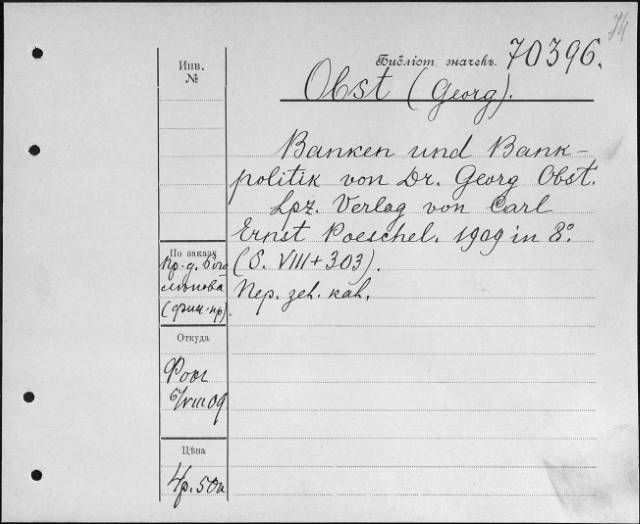 74
Инв.
№
Библіот. значекъ. 70396.
Obst (Georg).
Banken und Bank-
politik von Dr. Georg Obst.
Lpz. Verlag von Carl
Ernst Poeschel. 1909 in 8°.
(S. VIII + 303).
Пер. zeh. kah.
По заказу
Пр-д.
(фин. пр).
Откуда
6/VIII 09
Цѣна
4р. 50к